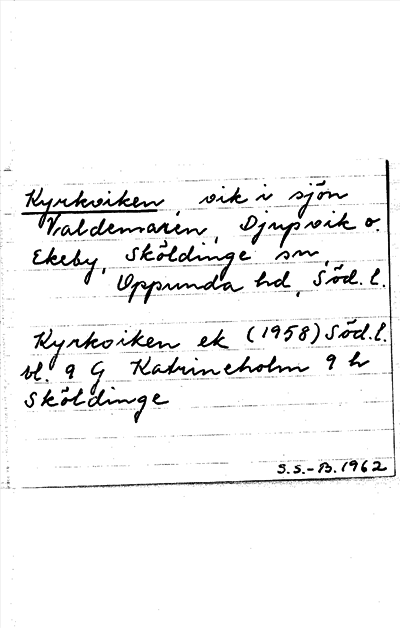 Kyrkviken, vik i sjön
Valdemaren, Djupvik o.
Ekeby, Sköldinge sn,
Oppunda hd, Söd. l.
Kyrkviken ek (1958) Söd. l.
bl. 9 G Katrineholm 9 h
Sköldinge
S.S.-B. 1962